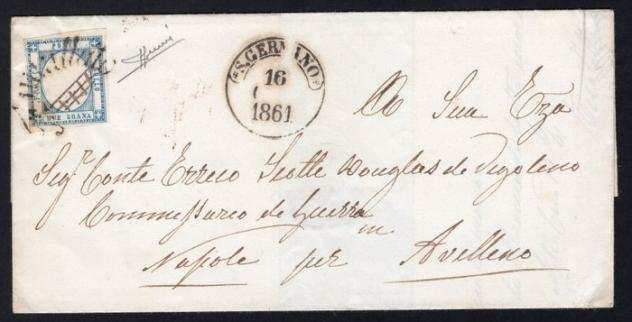 DUE GRANA
S. GERMANO
16
1861
A Sua Eza
Sigr Conte Errico Scotte Douglas de Vigoleno
Commessario de Guerra
in
Napole per Avelleno